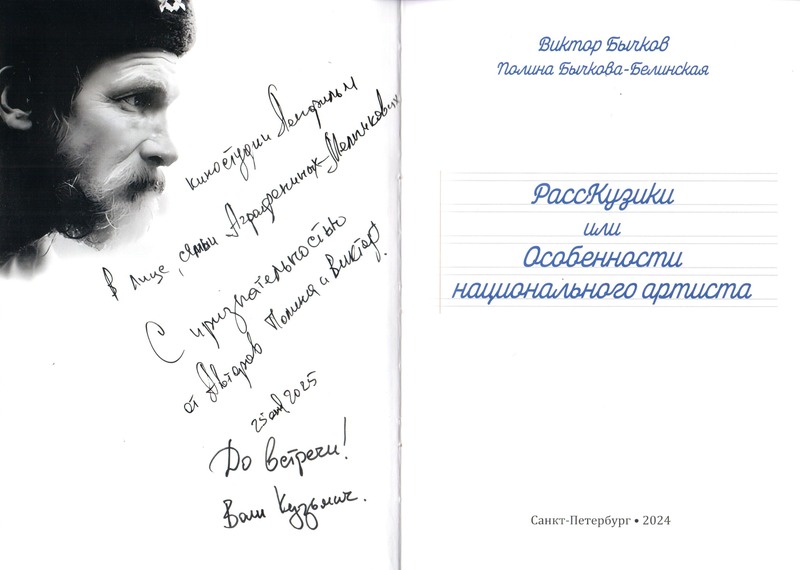 киностудии Ленфильм
В лице, семьи Аграфениных-Мельниковых
С признательностью
от Авторов Полина и Виктор.
25 2025
До встречи!
Ваш Кузьмич.
Виктор Бычков
Полина Бычкова-Белинская
РассКузики
или
Особенности
национального артиста
Санкт-Петербург • 2024